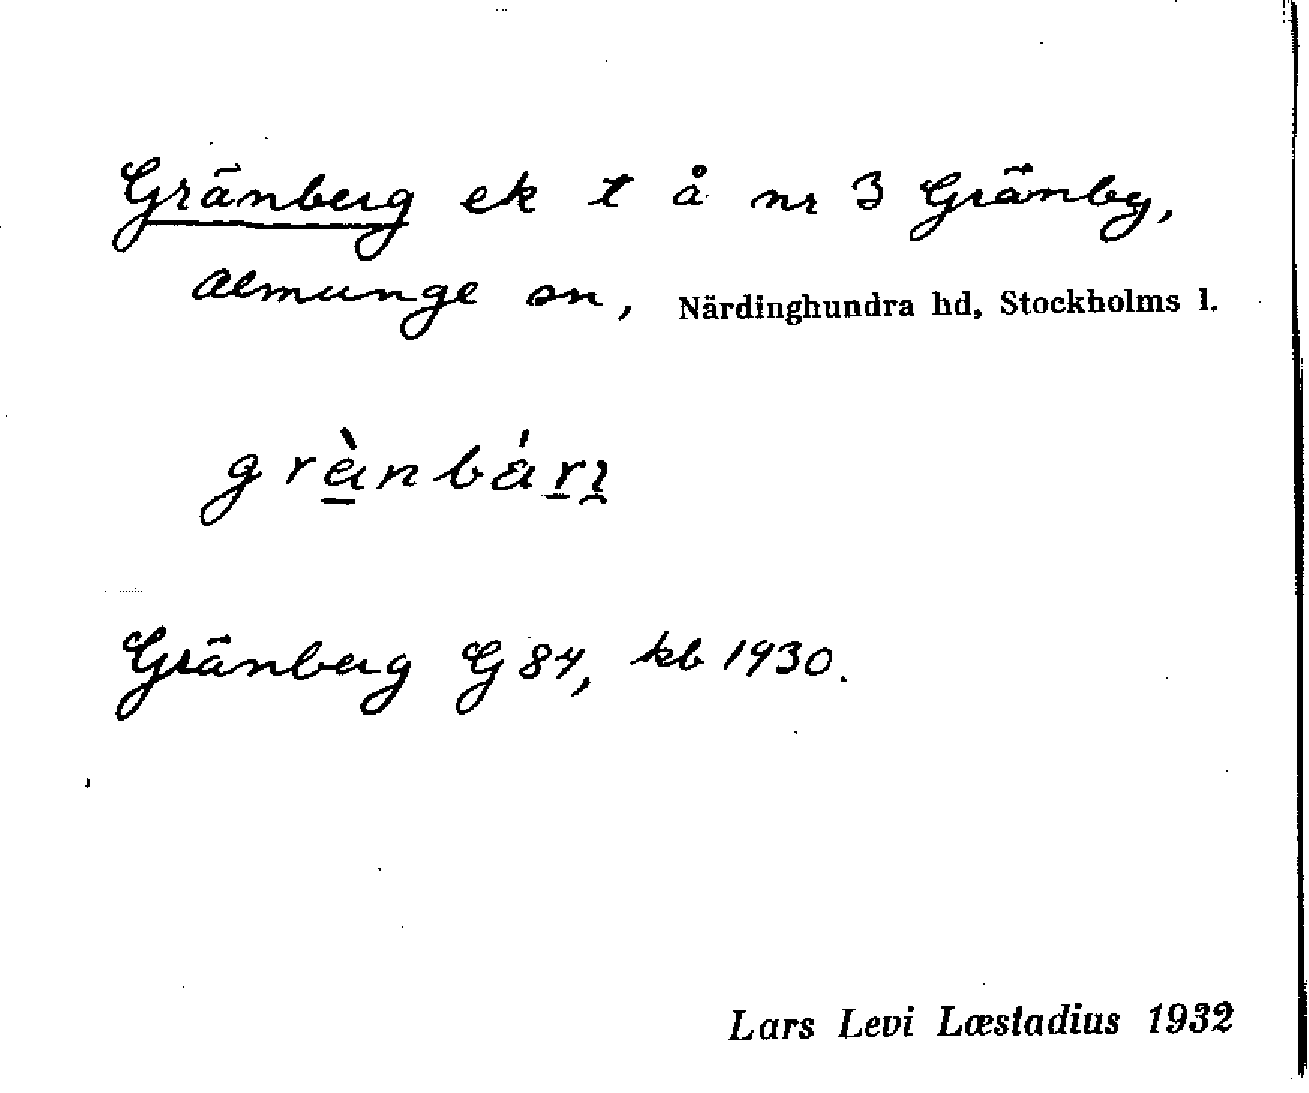 Gränberg ek t å nr 3 Gränby,
Almunge sn, Närdinghundra hd, Stockholms l.
grànbári
Gränberg G 84, kb 1930.
Lars Levi Læstadius 1932